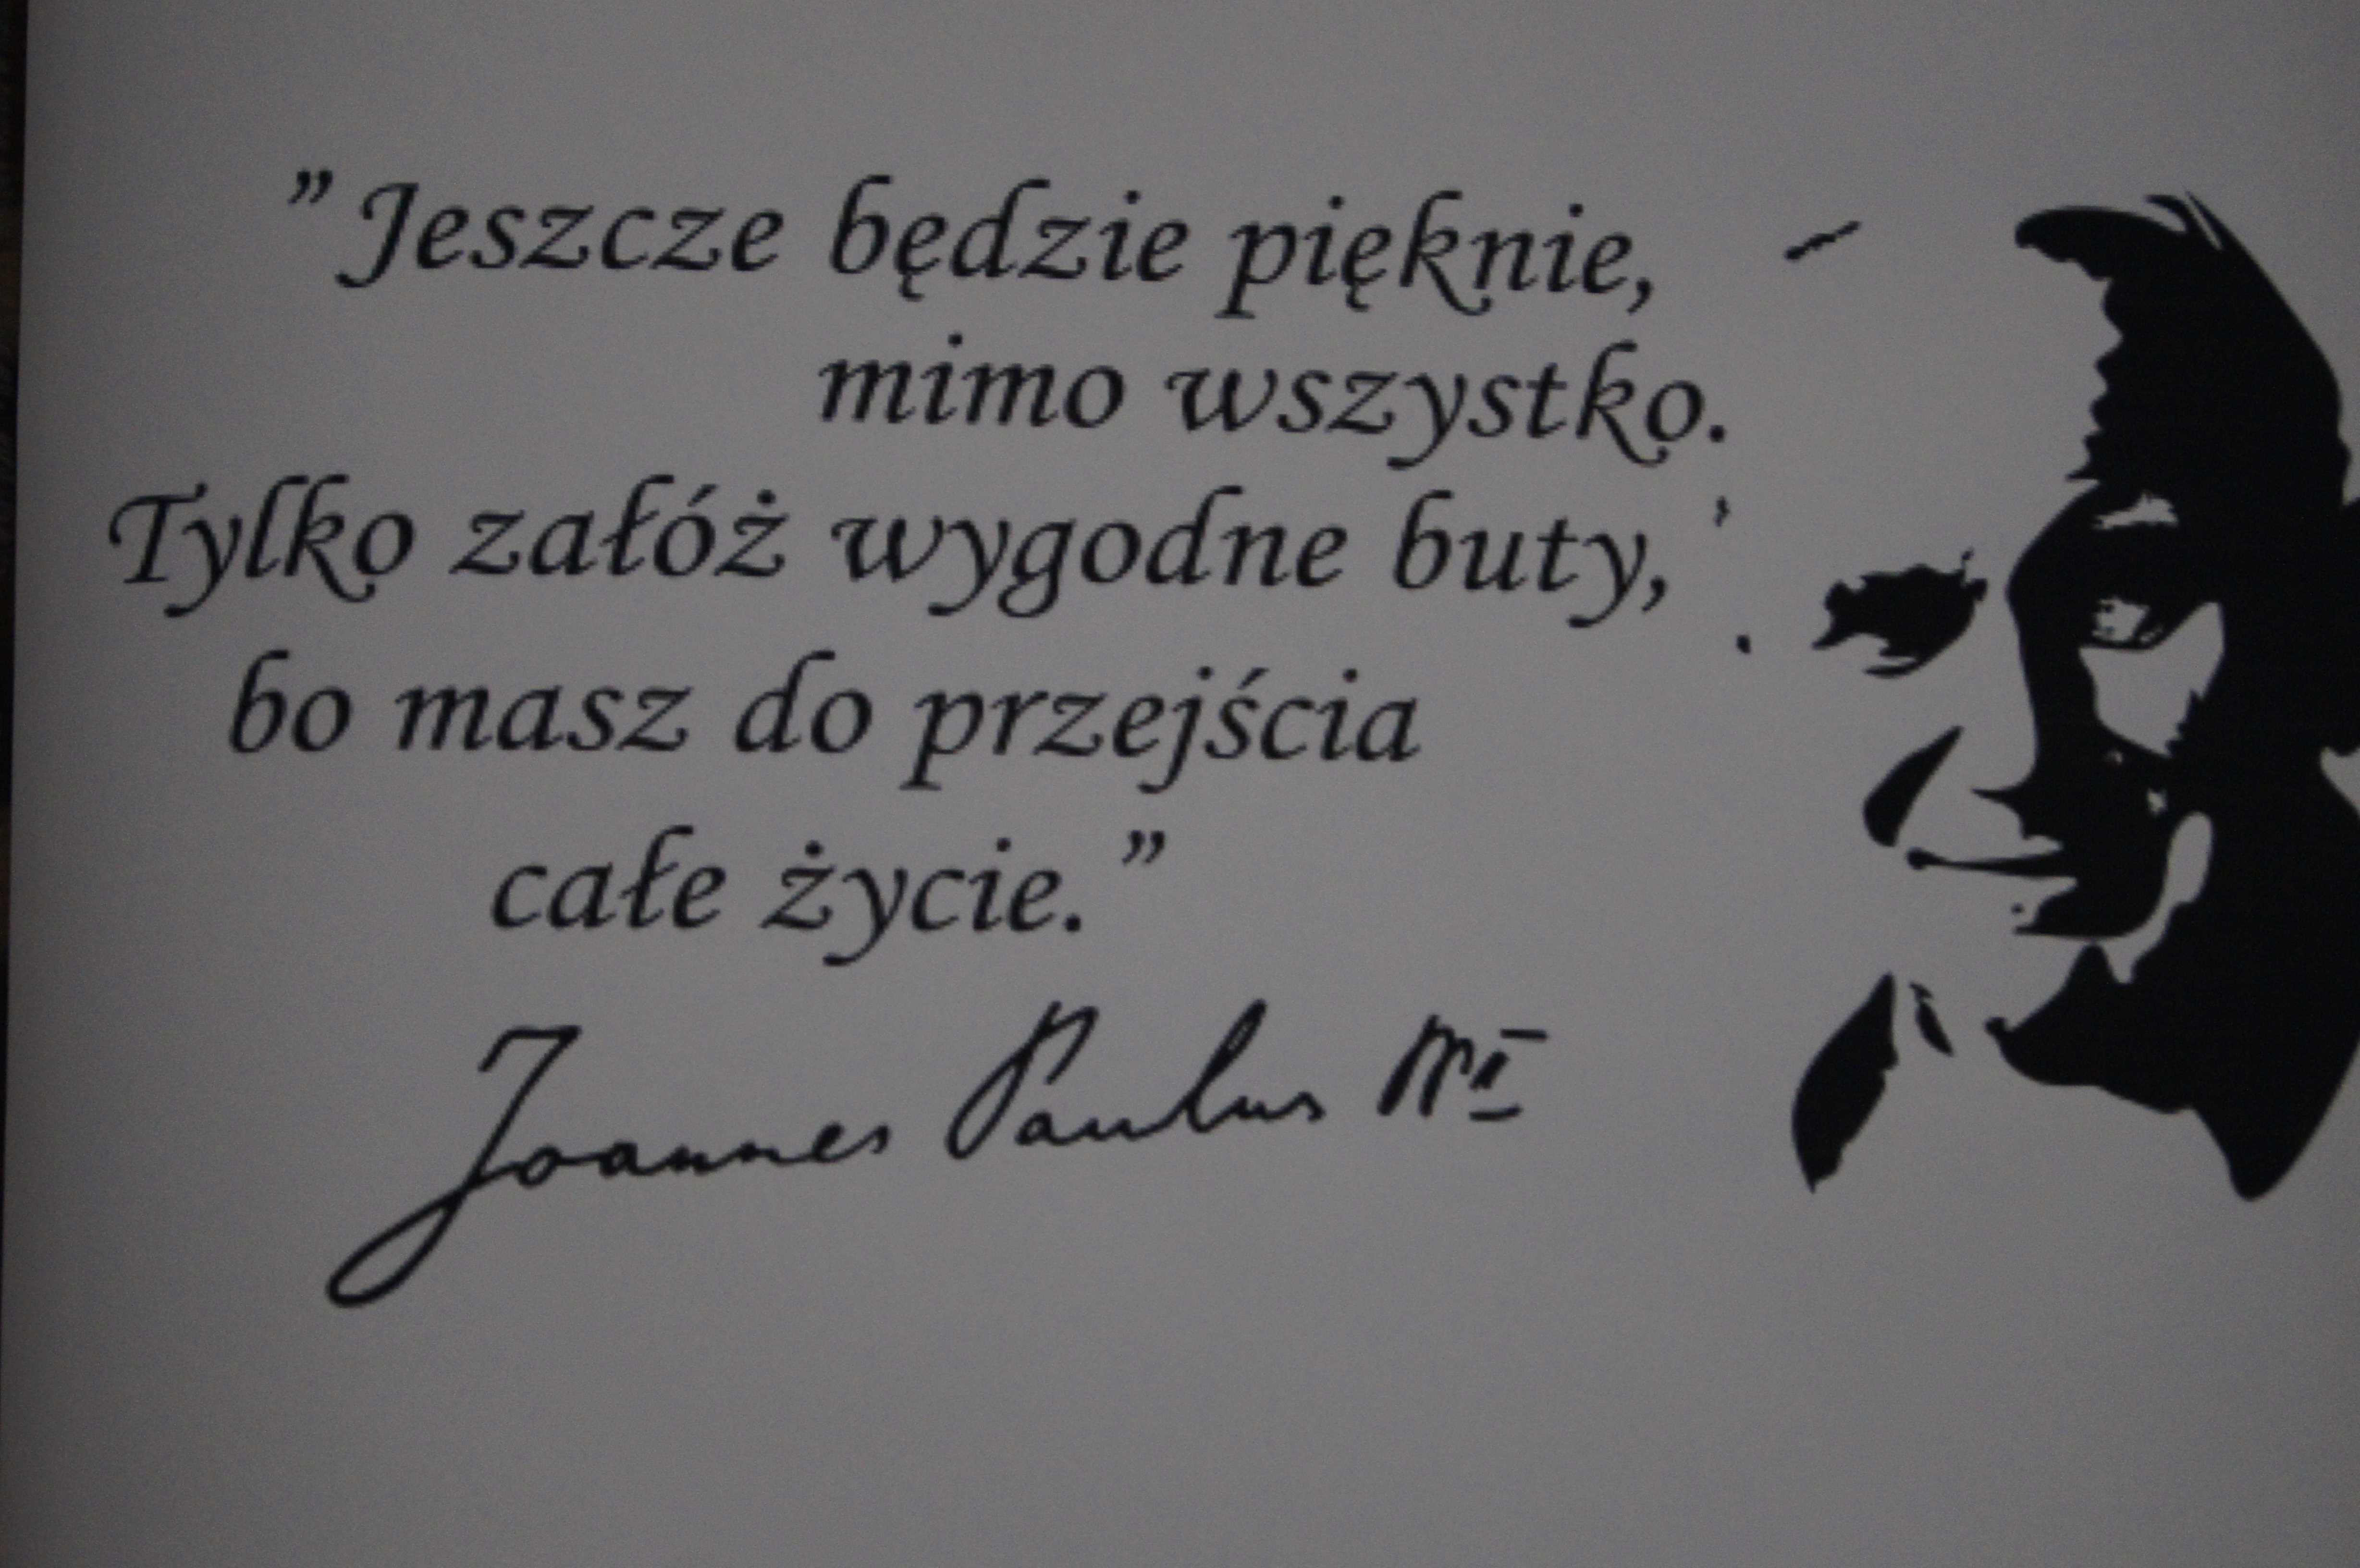 ”Jeszcze będzie pięknie,
mimo wszystko.
Tylko załóż wygodne buty,
bo masz do przejścia
całe życie.”
Joannes Paulus PP II